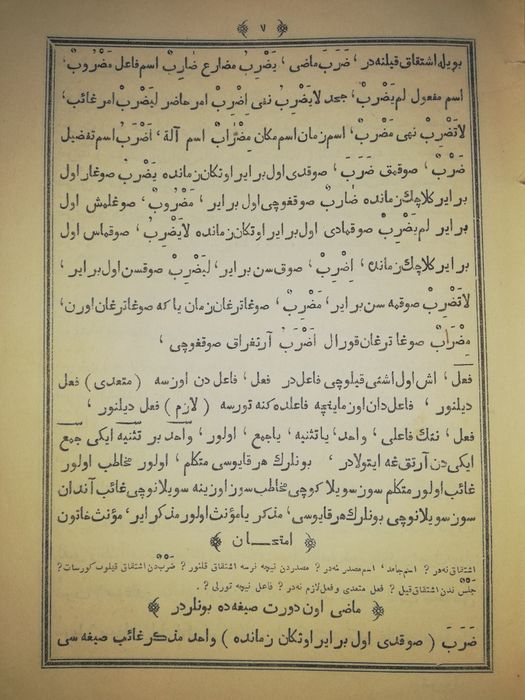 ٧
بویله اشتقاق قیلنه‌در ، ضَرَبَ ماضی ، یَضْرِبُ مضارع ضَارِبٌ اسم فاعل مَضْرُوبٌ،
اسم مفعول لم یَضْرِبْ، جحد لا یَضْرِبُ نفی اِضْرِبْ امر حاضر لِیَضْرِبْ امر غائب،
لَا تَضْرِبْ نهی مَضْرِبٌ، اسم زمان اسم مکان مِضْرَابٌ اسم آلة، اَضْرَبُ اسم تفضیل
ضَرْبٌ، صوقمق ضَرَبَ، صوقدی اول برایر اوتکان زمانده یَضْرِبُ صوغار اول
برایر کلاچك زمانده ضَارِبٌ صوقغوچی اول برایر، مَضْرُوبٌ، صوغلمش اول
برایر لم یَضْرِبْ صوقمادی اول برایر اوتکان زمانده لایَضْرِبُ، صوقماس اول
برایر کلاچك زمانده اِضْرِبْ، صوق سن برایر، لِیَضْرِبْ صوقسن اول برایر،
لَا تَضْرِبْ صوقمه سن برایر، مَضْرِبٌ، صوغاترغان زمان یا که صوغاترغان اورن،
مِضْرَابٌ صوغا ترغان قورال اَضْرَبُ آرتغراق صوقغوچی ،
فعل، اش اول اشنی قیلوچی فاعل در فعل، فاعل دن اوزسه (متعدی) فعل
دیلنور، فاعل‌دان اوزماینچه فاعلده‌کنه تورسه (لازم) فعل دیلنور،
فعل، ننك فاعلی، واحد، یا تثنیه، یا جمع، اولور، واحد بر تثنیه ایکی جمع
ایکی دن آرتق‌غه ایتولادر، بونلرك هر قایوسی متکلم، اولور مخاطب اولور
غائب اولور متکلم سوز سویلا کوچی مخاطب سوز اوزینه سویلانوچی غائب آندان
سوز سویلانوچی بونلرك هر قایوسی، مذکر یا مؤنث اولور مذکر ایر، مؤنث خاتون
امتحـــان
اشتقاق نه‌در؟ اسم جامد، اسم مصدر نه‌در؟ مصدردن نیچه نرسه اشتقاق قلنور؟ ضَرْبٌ دن اشتقاق قیلوب کورسات؟
جَلَسَ ندن اشتقاق قیل؟ فعل متعدی و فعل لازم نه‌در؟ فاعل نیچه تورلی؟.
ماضی اون دورت صیغه ده بونلردر
ضَرَبَ (صوقدی اول برایر اوتکان زمانده) واحد مذکر غائب صیغه سی